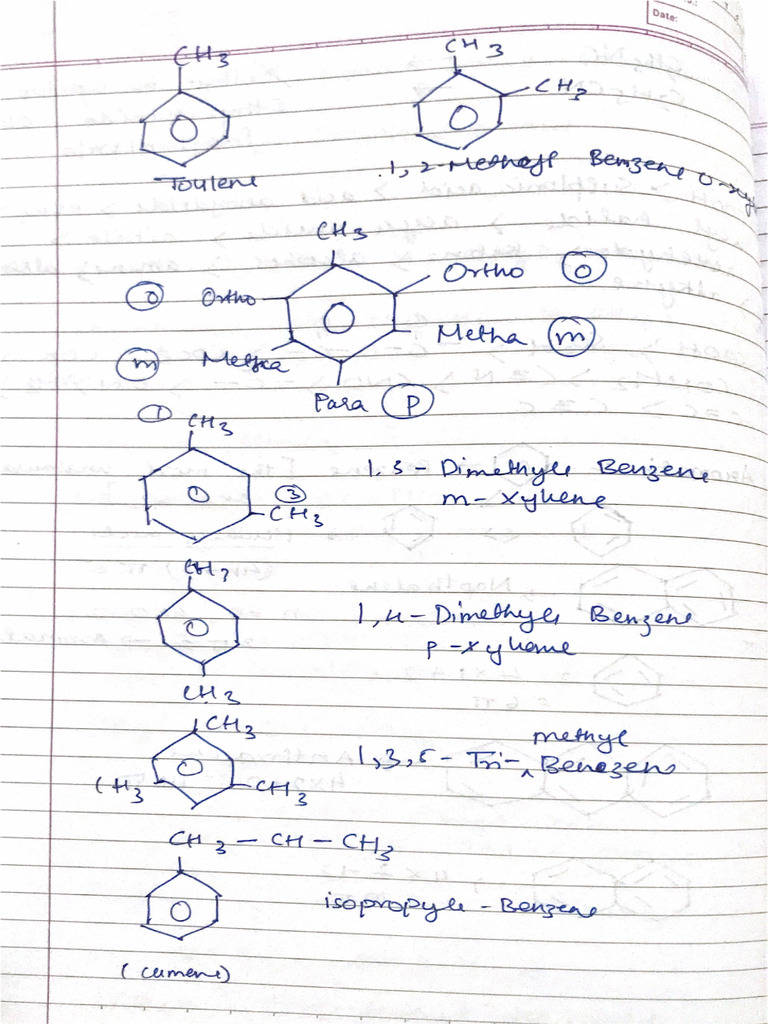 Date:
CH3
CH3
CH3
Toulene
1,2-Methayl Benzene o-xy
CH3
Ortho o
o Ortho
Metha m
m Metha
Para p
1 CH3
1,3 - Dimethyle Benzene
m - xylene
3
CH3
CH3
1,4 - Dimethyle Benzene
p - xylene
CH3
CH3
methyl
1,3,5 - Tri - Benezene
CH3
CH3
CH3 - CH - CH3
isopropyle - Benzene
(cumene)